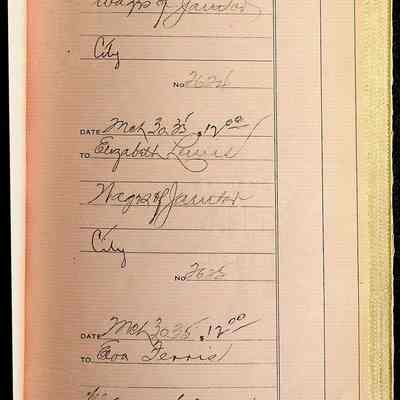 Wages of Janitor
City
No 2624
DATE Mch 30.35 $12.00
TO Elizabeth Lewis
Wages of Janitor
City
No 2625
DATE Mch 30 35 $12.00
TO Eva Ferris